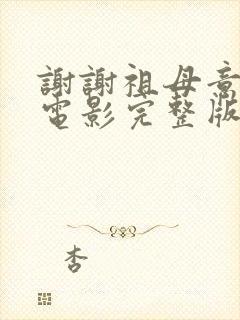 謝謝祖母意
電影完整版
杏